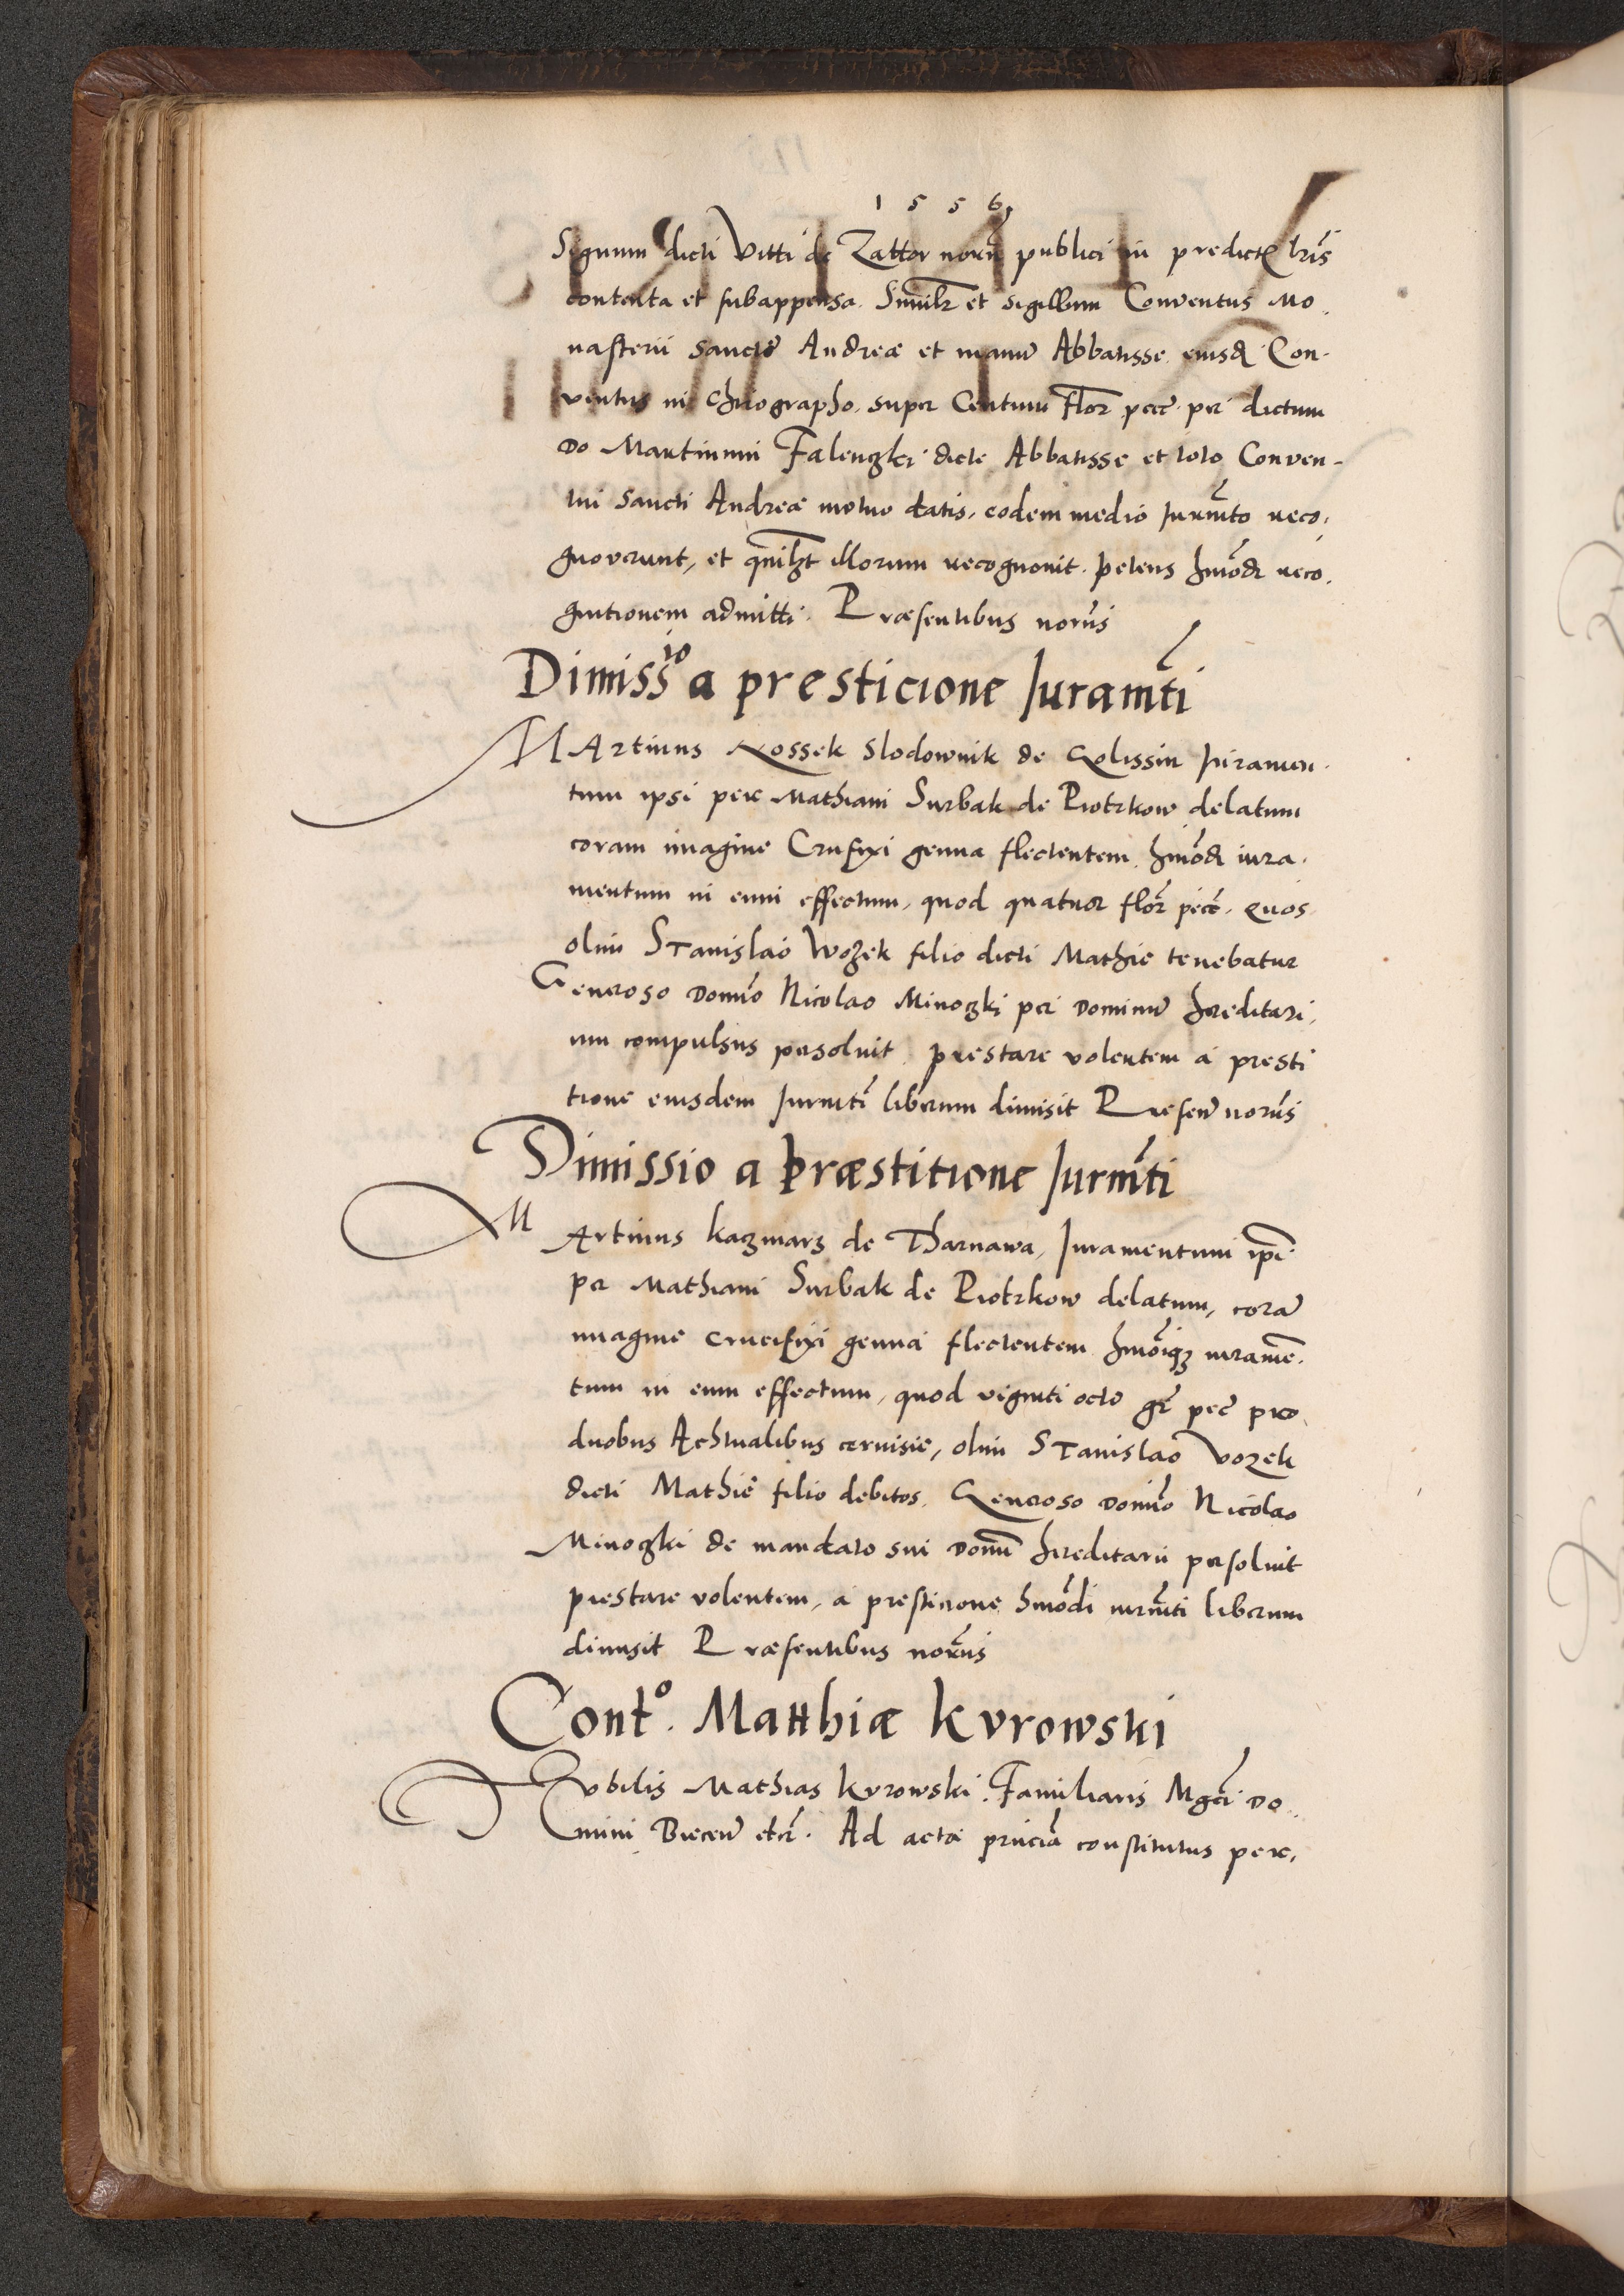 1 5 5 6.
Signum dicti Vitti de Zattor norỹ publici in predictꝭ lrīs
contenta et subappensa. Simīlr et sigillum Conventus Mo,
nasterii Sancte Andreæ et manū Abbatisse eiusd Con-
ventus in chirographo, super Centum flor pecē per dictum
Do Martinum Falenczki dicte Abbatisse et toto Conven-
tui Sancti Andreæ mutuo datis, eodem medio Jurmto reco,
gnoverunt, et qnilzt illorum recognovit. petens hmōdi reco,
gnitionem admitti. Præsentibus norūs
Dimissio a presticione Juramti
MArtinus Kossek Slodownik de Golissin Juramen,
tum ipsi per Mathiam Surbak de Piotrkow delatum
coram imagine Crufixi genua flectentem, hmōdi iura,
mentum in eum effectum, quod quatuor flor pecē, quos
olim Stanislao Wozek filio dicti Mathie tenebatur
Generoso Domīo Nicolao Minoczki per Dominū hereditari,
um compulsus persoluit, prestare volentem a presti
tione eiusdem Jurmti liberum dimisit Presen norūs
Dimissio a præstitione Jurmti
MArtinus Kaczmarz de Tharnawa, Juramentum ipi
per Mathiam Surbak de Piotrkow delatum, corā
imagine crucifixi genua flectentem hmōiqz iuramē,
tum in eum effectum, quod viginti octo gr pecē pro
duobus Achtualibus cervisie, olim Stanislao Vozek
dicti Mathie filio debitos, Generoso Domīo Nicolao
Minoczki de mandato sui Domī hereditarii persoluit
prestare volentem, a presticione hmōdi iurmti liberum
dimisit Præsentibus norūs
Conto. Matthiæ Kvrowski
Nobilis Mathias Kvrowski Familiaris Mgci Do,
mini Biecen etc. Ad acta pnciā constitutus per,